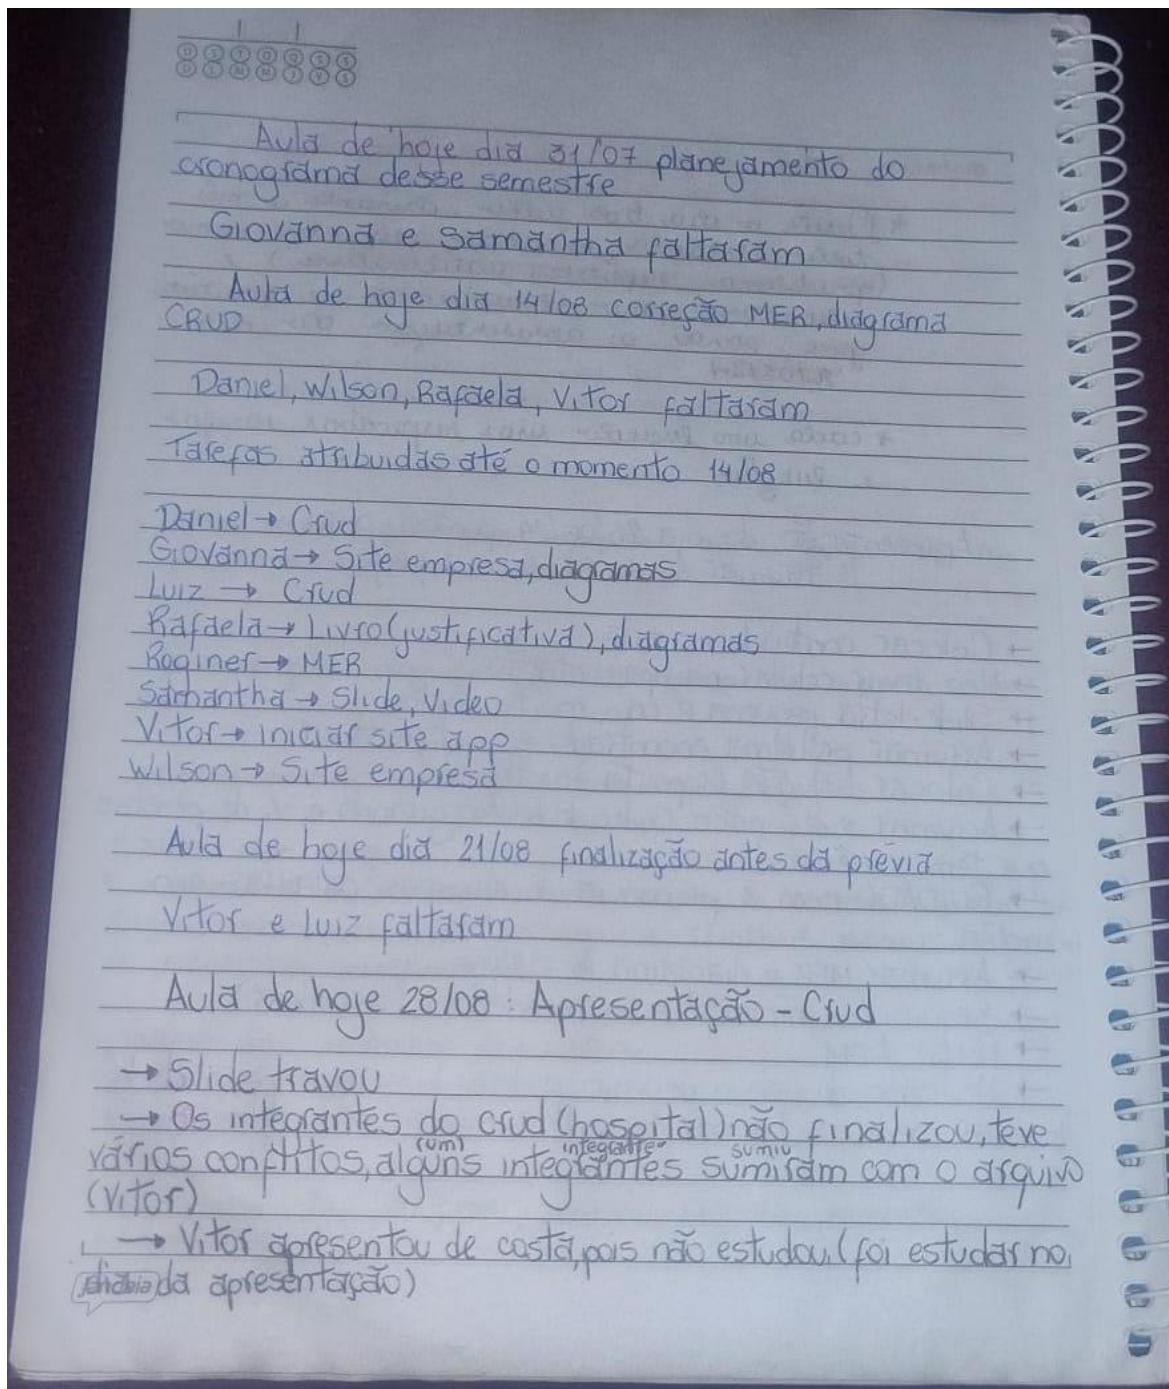 Aula de hoje dia 31/07 planejamento do
cronograma desse semestre
Giovanna e Samantha faltaram
Aula de hoje dia 14/08 correção MER, diagrama
CRUD
Daniel, Wilson, Rafaela, Vitor faltaram
Tarefas atribuidas até o momento 14/08
Daniel → Crud
Giovanna → Site empresa, diagramas
Luiz → Crud
Rafaela → Livro (justificativa), diagramas
Roginer → MER
Samantha → Slide, Video
Vitor → iniciar site app
Wilson → Site empresa
Aula de hoje dia 21/08 finalização antes da prévia
Vitor e Luiz faltaram
Aula de hoje 28/08 : Apresentação - Crud
→ Slide travou
→ Os integrantes do crud (hospital) não finalizou, teve
(um) integrante sumiu
vários conflitos, alguns integrantes sumiram com o arquivo
(Vitor)
→ Vitor apresentou de costa, pois não estudou (foi estudar no
da apresentação)